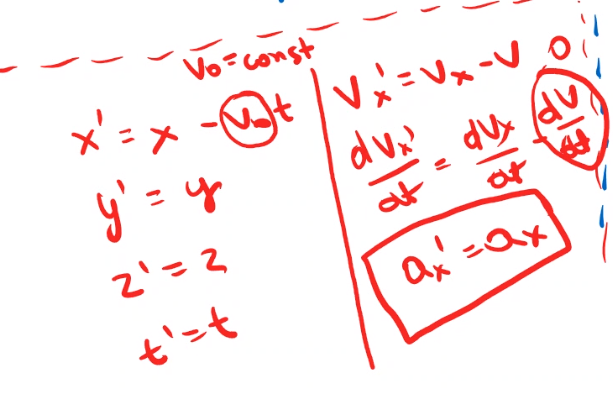 V₀ = const
x' = x - V₀t
y' = y
z' = z
t' = t
Vx' = Vx - V
0
dVx'/dt = dVx/dt - dV/dt
ax' = ax